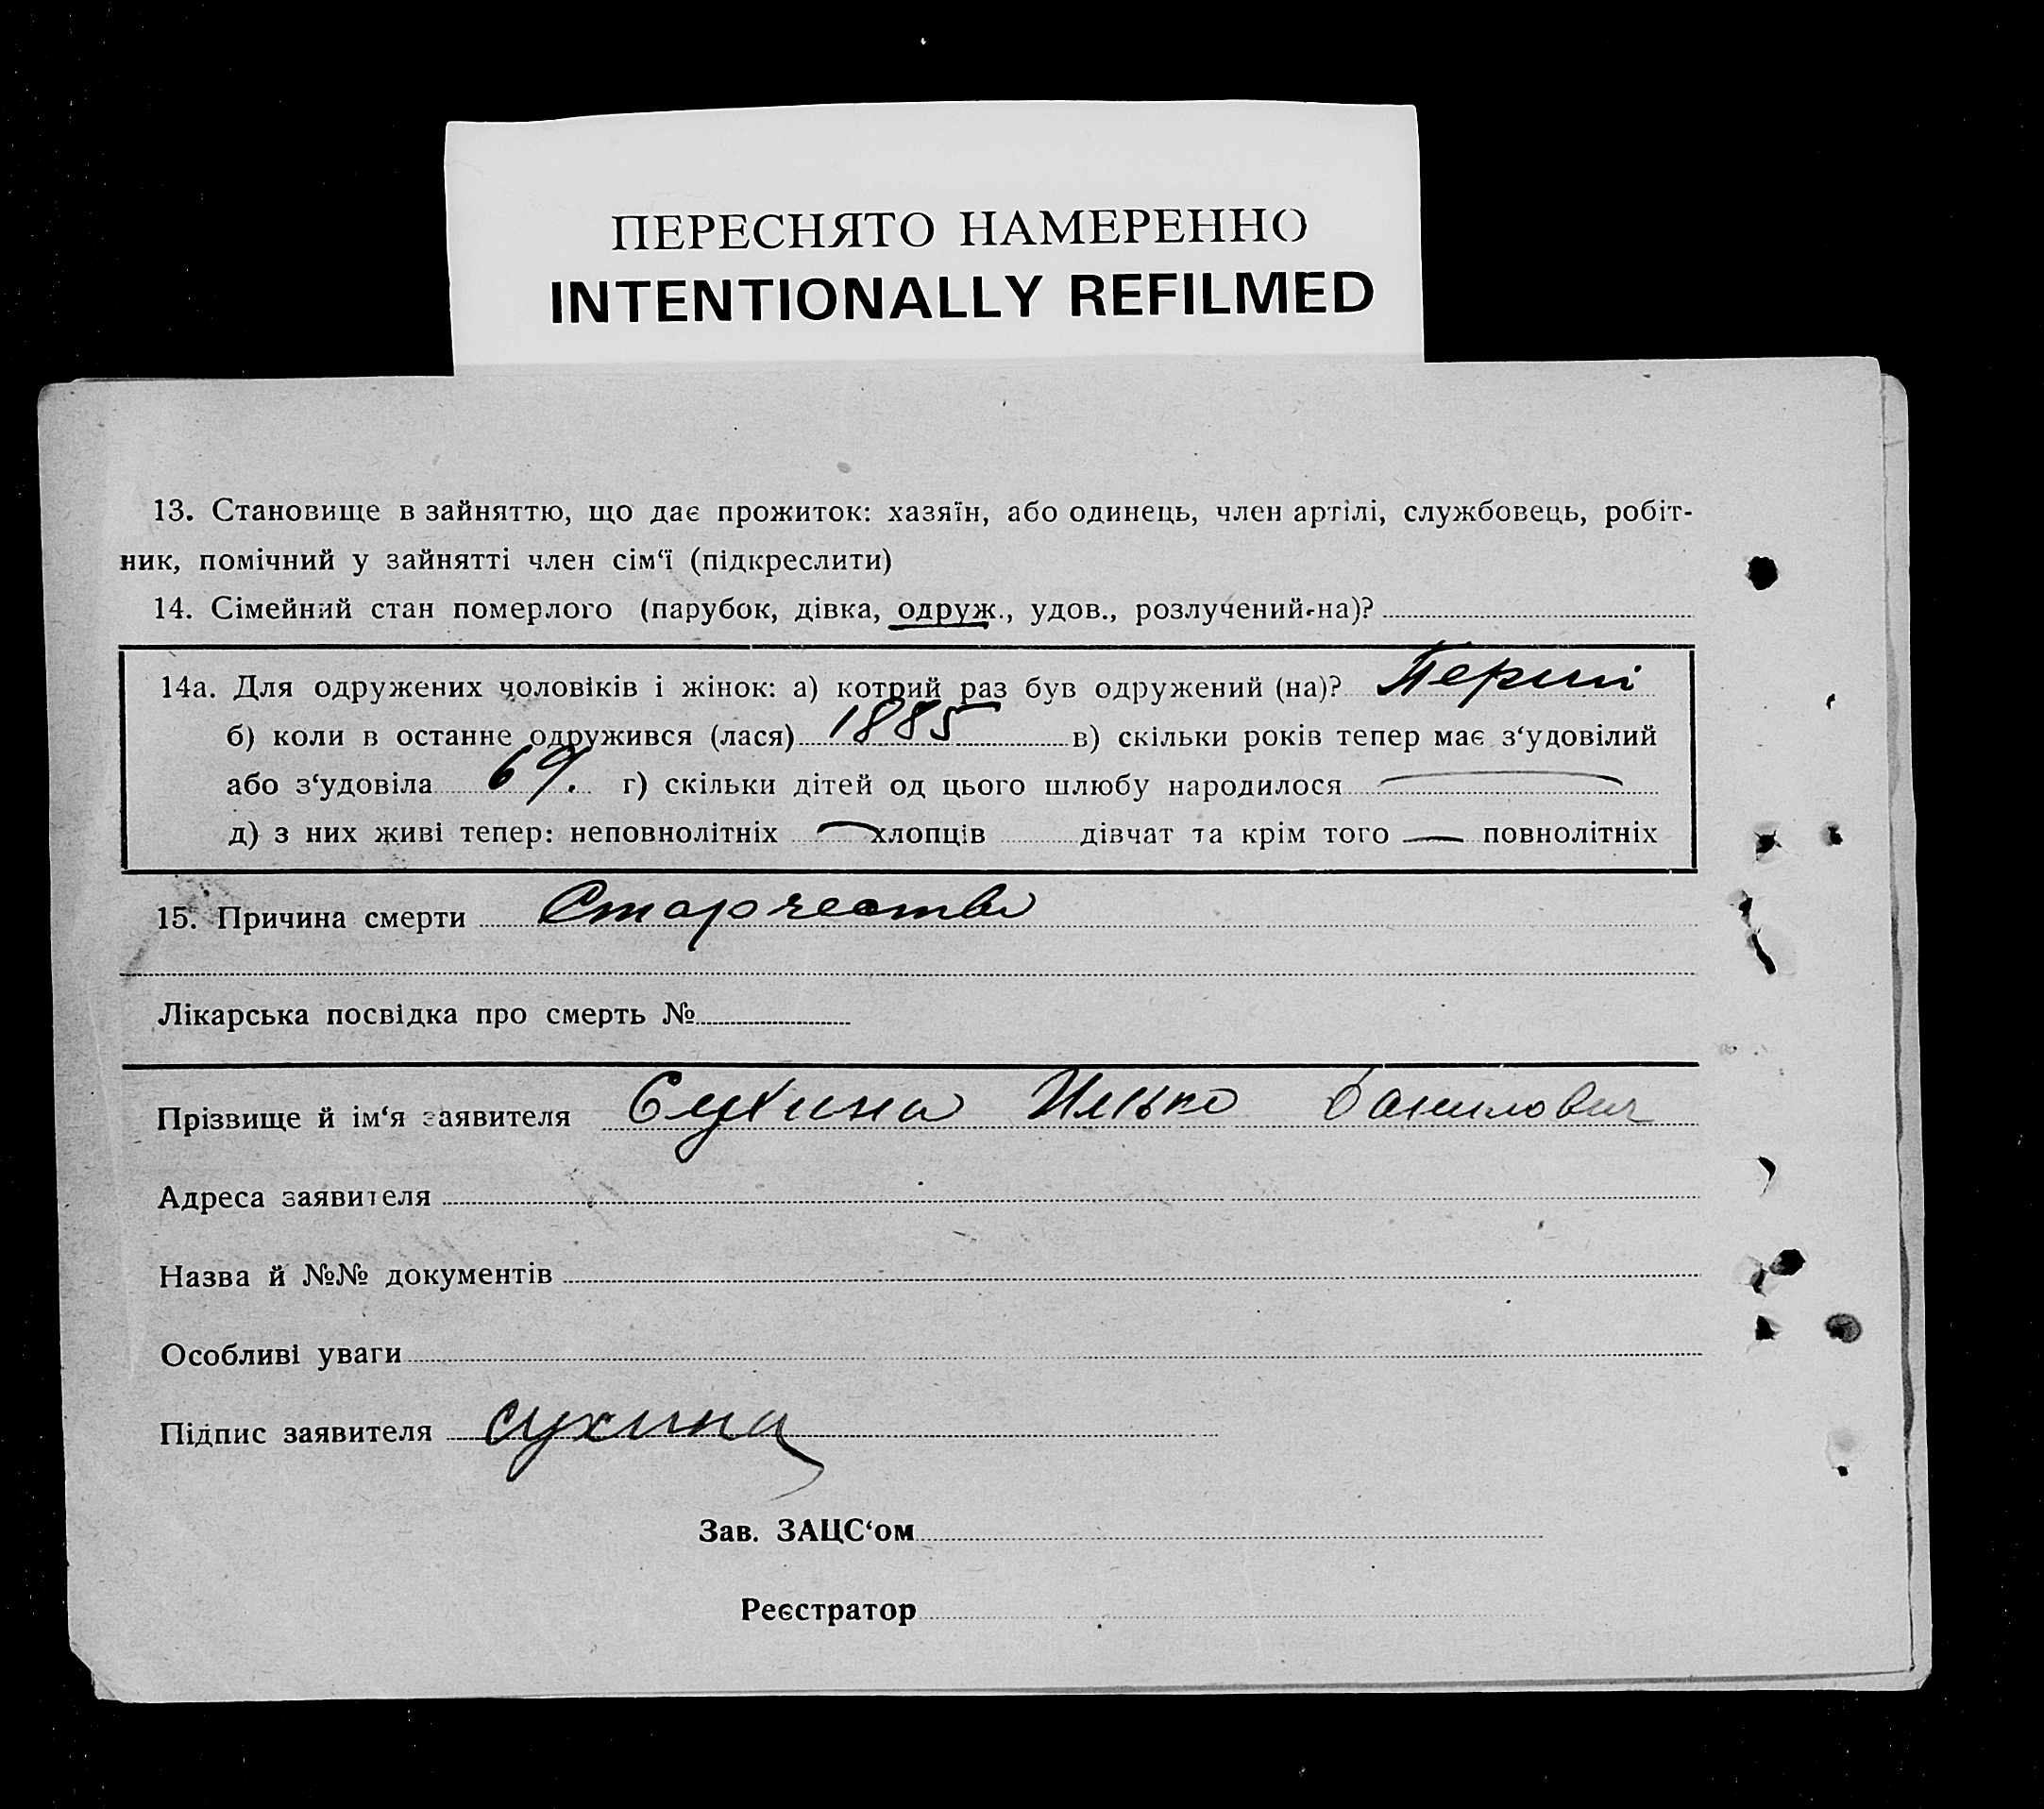 ПЕРЕСНЯТО НАМЕРЕННО
INTENTIONALLY REFILMED
13. Становище в зайняттю, що дає прожиток: хазяїн, або одинець, член артілі, службовець, робіт-
ник, помічний у зайнятті член сім‘ї (підкреслити)
14. Сімейний стан померлого (парубок, дівка, одруж., удов., розлучений-на)?
14а. Для одружених чоловіків і жінок: а) котрий раз був одружений (на)? Перший
б) коли в останне одружився (лася) 1885 в) скільки років тепер має з‘удовілий
або з‘удовіла 69. г) скільки дітей од цього шлюбу народилося
д) з них живі тепер: неповнолітніх хлопців дівчат та крім того повнолітніх
15. Причина смерти Старчества
Лікарська посвідка про смерть №
Прізвище й ім‘я заявителя Сухина Илько Данилович
Адреса заявителя
Назва й №№ документів
Особливі уваги
Підпис заявителя Сухина
Зав. ЗАЦС‘ом
Реєстратор